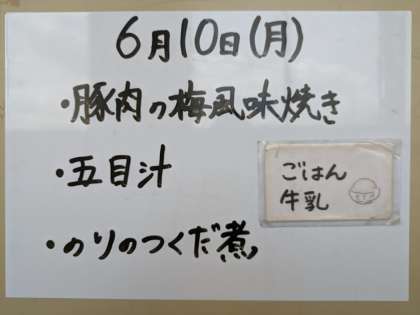 6月10日(月)
・豚肉の梅風味焼き
・五目汁
ごはん
牛乳
・のりのつくだ煮